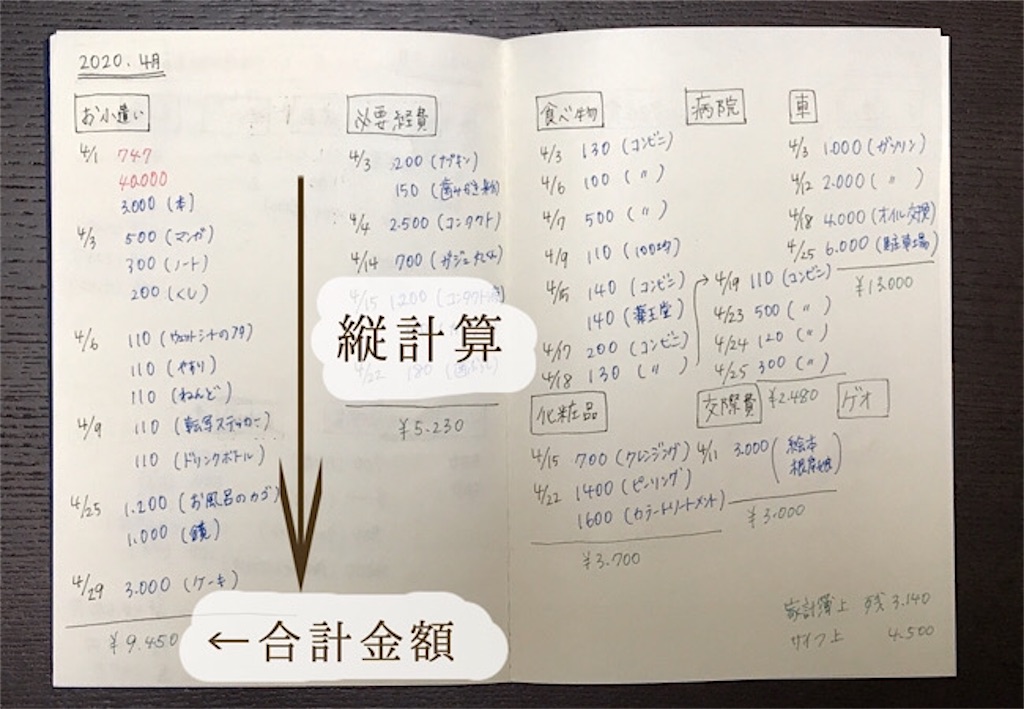 2020.4月
お小遣い
4/1 747
40.000
3.000 (本)
4/3 500 (マンガ)
300 (ノート)
200 (くし)
4/6 110 (ウェットシートのフタ)
110 (やすり)
110 (ねんど)
4/9 110 (転写ステッカー)
110 (ドリンクボトル)
4/25 1.200 (お風呂のカゴ)
1.000 (鏡)
4/29 3.000 (ケーキ)
¥9.450
←合計金額
必要経費
4/3 200 (ナプキン)
150 (歯みがき粉)
4/4 2.500 (コンタクト)
4/14 700
4/15 1200
縦計算
4/22 180
¥5.230
食べ物
4/3 130 (コンビニ)
4/6 100 (〃)
4/7 500 (〃)
4/9 110 (100均)
4/15 140 (コンビニ)
140 (薬王堂)
4/17 200 (コンビニ)
4/18 130 (〃)
→4/19 110 (コンビニ)
4/23 500 (〃)
4/24 120 (〃)
4/25 300 (〃)
¥2.480
病院
車
4/3 1.000 (ガソリン)
4/12 2.000 (〃)
4/18 4.000 (オイル交換)
4/25 6.000 (駐車場)
¥13.000
化粧品
4/15 700 (クレンジング)
4/22 1400 (ピーリング)
1600 (カラートリートメント)
¥3.700
交際費
4/11 3.000 (絵本
¥3.000
ゲオ
家計簿上 残 3.140
サイフ上 4.500